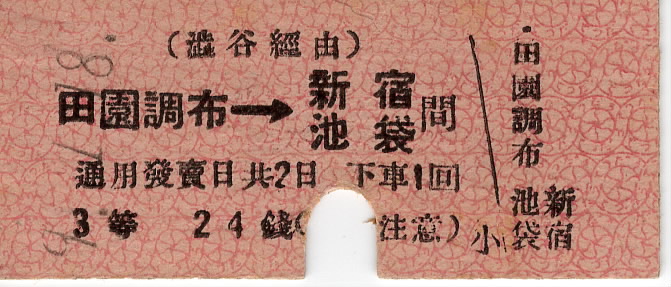 (澁谷經由)
田園調布→新宿池袋間
通用發賣日共2日 下車1回
3等 24錢( 注意)
田園調布 新宿池袋
小